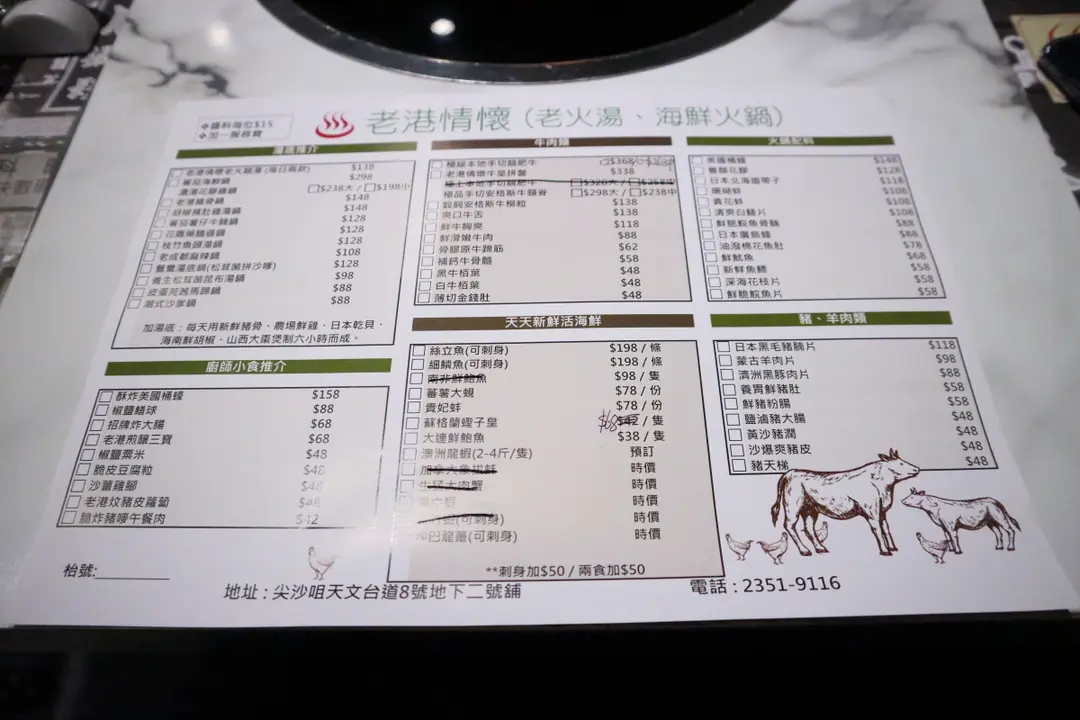 醬料每位$15
加一服務費
老港情懷 (老火湯、海鮮火鍋)
湯底推介
老港情懷老火靚湯(每日兩款) $138
蕃茄海鮮鍋 $298
濃湯花膠雞鍋 $238大 / $198小
老港豬骨鍋 $148
胡椒豬肚雞湯鍋 $148
蕃茄薯仔牛尾鍋 $128
$128
枝竹魚頭湯鍋 $128
老成都麻辣鍋 $108
鴛鴦湯底鍋(松茸菌拼沙嗲) $128
養生松茸菌昆布湯鍋 $98
皮蛋芫茜馬蹄鍋 $88
潮式沙爹鍋 $88
加湯底:每天用新鮮豬骨、農場鮮雞、日本乾貝、
海南鮮胡椒、山西大棗煲制六小時而成。
廚師小食推介
酥炸美國桶蠔 $158
椒鹽鱔球 $88
招牌炸大腸 $68
老港煎釀三寶 $68
椒鹽粟米 $48
脆皮豆腐粒 $48
沙薑雞腳 $48
老港炆豬皮蘿蔔 $48
脆炸豬嘜午餐肉 $42
枱號:
牛肉類
極級本地手切靚肥牛
老港情懷牛皇拼盤 $338
極上本地手切靚肥牛 $328大 / $258中
極品手切安格斯牛頸脊 $298大 / $238中
穀飼安格斯牛柳粒 $138
爽口牛舌 $138
鮮牛胸爽 $118
鮮滑嫩牛肉 $88
骨膠原牛蹄筋 $62
補鈣牛骨髓 $58
黑牛栢葉 $48
白牛栢葉 $48
薄切金錢肚 $48
天天新鮮活海鮮
絲立魚(可刺身) $198 / 條
細鱗魚(可刺身) $198 / 條
南非鮮鮑魚 $98 / 隻
蕃薯大蜆 $78 / 份
貴妃蚌 $78 / 份
蘇格蘭蟶子皇 $68 $42 / 隻
大連鮮鮑魚 $38 / 隻
澳洲龍蝦(2-4斤/隻) 預訂
加拿大象拔蚌 時價
生猛大肉蟹 時價
時價
(可刺身) 時價
巴龍躉(可刺身) 時價
**刺身加$50 / 兩食加$50
火鍋配料
美國桶蠔 $148
養顏花膠 $128
日本北海道帶子 $118
珊瑚蚌 $108
貴花蚌 $108
清爽白鱔片 $108
鮮脆鯇魚骨腩 $88
日本廣島蠔 $88
油潑棉花魚肚 $78
鮮魷魚 $68
新鮮魚鰾 $58
深海花枝片 $58
鮮脆鯇魚片 $58
豬、羊肉類
日本黑毛豬腩片 $118
蒙古羊肉片 $98
濟洲黑豚肉片 $88
養胃鮮豬肚 $58
鮮豬粉腸 $58
鹽滷豬大腸 $48
黃沙豬潤 $48
沙爆爽豬皮 $48
豬天梯 $48
地址 : 尖沙咀天文台道8號地下二號舖
電話 : 2351-9116